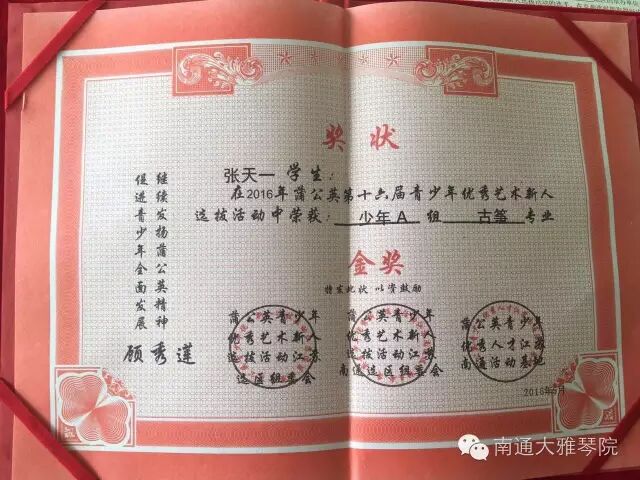 奖状
张天一 学生：
在2016年蒲公英第十六届青少年优秀艺术新人
选拔活动中荣获： 少年A 组 古筝 专业
金奖
特发此状 以资鼓励
继续发扬蒲公英精神
促进青少年全面发展
顾秀莲
蒲公英青少年
优秀艺术新人
选拔活动江苏
选区组委会
蒲公英青少年
优秀艺术新人
选拔活动江苏
南通选区组委会
蒲公英青少年
优秀人才江苏
南通活动基地
2016年5月
南通大雅琴院